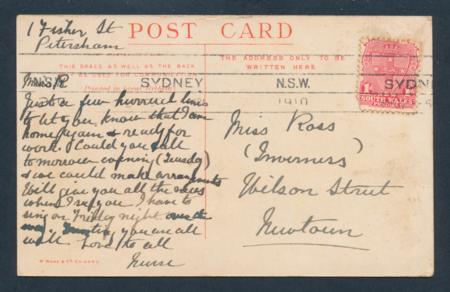 1 Fisher St
Petersham
POST CARD
THIS SPACE AS WELL AS THE BACK
MAY BE USED FOR COMMUNICATION
THE ADDRESS ONLY TO BE
WRITTEN HERE
NSW SYDNEY
N.S.W.
1910
SYDNEY
SOUTH WALES
Miss R
Just a few hurried lines
to let you know that I am
home again & ready for
work. Could you call
tomorrow evening (Tuesday)
& we could make arrangements
Will give you all the news
when I see you. I have to
sing on Friday night
you are all
well. Love to all
Nurse
Miss Ross
(Inverness)
Wilson Street
Newtown